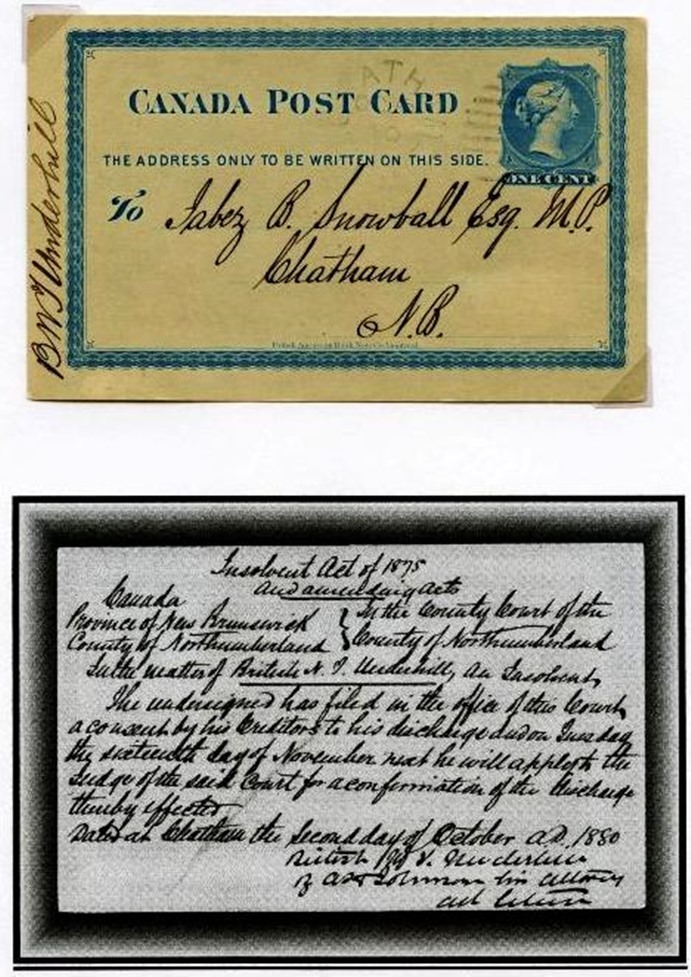 CANADA POST CARD
THE ADDRESS ONLY TO BE WRITTEN ON THIS SIDE.
ONE CENT
To Jabez B. Snowball Esq. M.P.
Chatham
N.B.
B N T Underhill
Insolvent Act of 1875
And amending Acts
Canada
Province of New Brunswick } In the County Court of the
County of Northumberland } County of Northumberland
In the matter of British N. T. Underhill, an Insolvent,
The undersigned has filed in the office of this Court,
a consent by his Creditors to his discharge and on Tuesday
the sixteenth day of November next he will apply to the
Judge of the said Court for a confirmation of the discharge
thereby effected
Dated at Chatham the Second day of October A.D. 1880
British N. T. Underhill
by Johnson his attorney